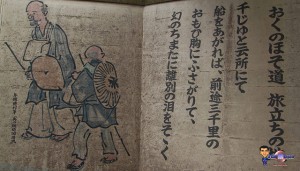 おくのほそ道 旅立ちの
千じゆと云所にて
船をあがれば、前途三千里の
おもひ胸にふさがりて、
幻のちまたに離別の泪をそゝく